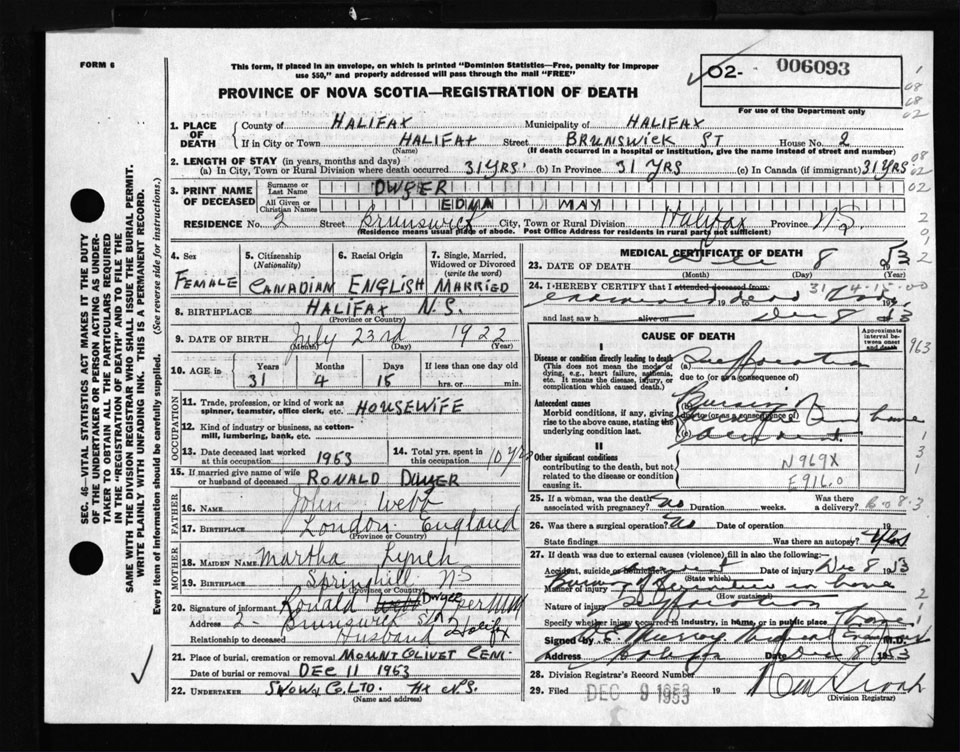 FORM 6
This form, if placed in an envelope, on which is printed "Dominion Statistics—Free, penalty for improper
use $50," and properly addressed will pass through the mail "FREE"
PROVINCE OF NOVA SCOTIA—REGISTRATION OF DEATH
02- 006093
For use of the Department only
1. PLACE OF DEATH
County of HALIFAX Municipality of HALIFAX
If in City or Town HALIFAX Street BRUNSWICK ST House No. 2
(Name) (If death occurred in a hospital or institution, give the name instead of street and number)
2. LENGTH OF STAY (in years, months and days)
(a) In City, Town or Rural Division where death occurred 31 YRS. (b) In Province 31 YRS (c) In Canada (if immigrant) 31 YRS
3. PRINT NAME OF DECEASED
Surname or Last Name DWYER
All Given or Christian Names EDNA MAY
RESIDENCE No. 2 Street Brunswick City, Town or Rural Division Halifax Province N.S.
(Residence means usual place of abode. Post Office Address for residents in rural parts not sufficient)
4. Sex FEMALE
5. Citizenship (Nationality) CANADIAN
6. Racial Origin ENGLISH
7. Single, Married, Widowed or Divorced (write the word) MARRIED
8. BIRTHPLACE HALIFAX N.S.
(Province or Country)
9. DATE OF BIRTH July 23rd 1922
(Month) (Day) (Year)
10. AGE in Years Months Days If less than one day old
31 4 15 hrs. or min.
OCCUPATION
11. Trade, profession, or kind of work as spinner, teamster, office clerk, etc. HOUSEWIFE
12. Kind of industry or business, as cotton-mill, lumbering, bank, etc.
13. Date deceased last worked at this occupation 1953
14. Total yrs. spent in this occupation 10 yrs
15. If married give name of wife or husband of deceased RONALD DWYER
FATHER
16. NAME John Webb
17. BIRTHPLACE London England
(Province or Country)
MOTHER
18. MAIDEN NAME Martha Lynch
19. BIRTHPLACE Springhill NS
(Province or Country)
20. Signature of informant Ronald Webb Dwyer per
Address 2- Brunswick St Halifax
Relationship to deceased Husband
21. Place of burial, cremation or removal MOUNT OLIVET CEM.
Date of burial or removal DEC 11 1953
22. UNDERTAKER SNOW & CO. LTD. HX N.S.
(Name and address)
MEDICAL CERTIFICATE OF DEATH
23. DATE OF DEATH 8 1953
(Month) (Day) (Year)
24. I HEREBY CERTIFY that I attended deceased from:
examined dead body
and last saw h alive on Dec 8 1953
CAUSE OF DEATH
Approximate interval between onset and death
I
Disease or condition directly leading to death
(This does not mean the mode of dying, e.g., heart failure, asthenia, etc. It means the disease, injury, or complication which caused death.)
(a) Suffocation
due to (or as a consequence of)
Antecedent causes
Morbid conditions, if any, giving rise to the above cause, stating the underlying condition last.
(b) Burning of furniture in home
due to (or as a consequence of)
(c) accident.
II
Other significant conditions
contributing to the death, but not related to the disease or condition causing it.
N969X
E916.0
25. If a woman, was the death associated with pregnancy? No Duration weeks. Was there a delivery?
26. Was there a surgical operation? No Date of operation 19
State findings Was there an autopsy? Yes
27. If death was due to external causes (violence) fill in also the following:—
Accident, suicide or homicide? Accident Date of injury Dec 8 1953
(State which)
Manner of injury Burning of furniture in home
(How sustained)
Nature of injury Suffocation
Specify whether injury occurred in industry, in home, or in public place (home)
Signed by Murray Medical Examiner M.D.
Address Halifax Date Dec 8 1953
28. Division Registrar's Record Number
29. Filed DEC 9 1953 19
1953
(Division Registrar)
SEC. 46—VITAL STATISTICS ACT MAKES IT THE DUTY
OF THE UNDERTAKER OR PERSON ACTING AS UNDER-
TAKER TO OBTAIN ALL THE PARTICULARS REQUIRED
IN THE "REGISTRATION OF DEATH" AND TO FILE THE
SAME WITH THE DIVISION REGISTRAR WHO SHALL ISSUE THE BURIAL PERMIT.
WRITE PLAINLY WITH UNFADING INK. THIS IS A PERMANENT RECORD.
Every item of information should be carefully supplied. (See reverse side for instructions.)